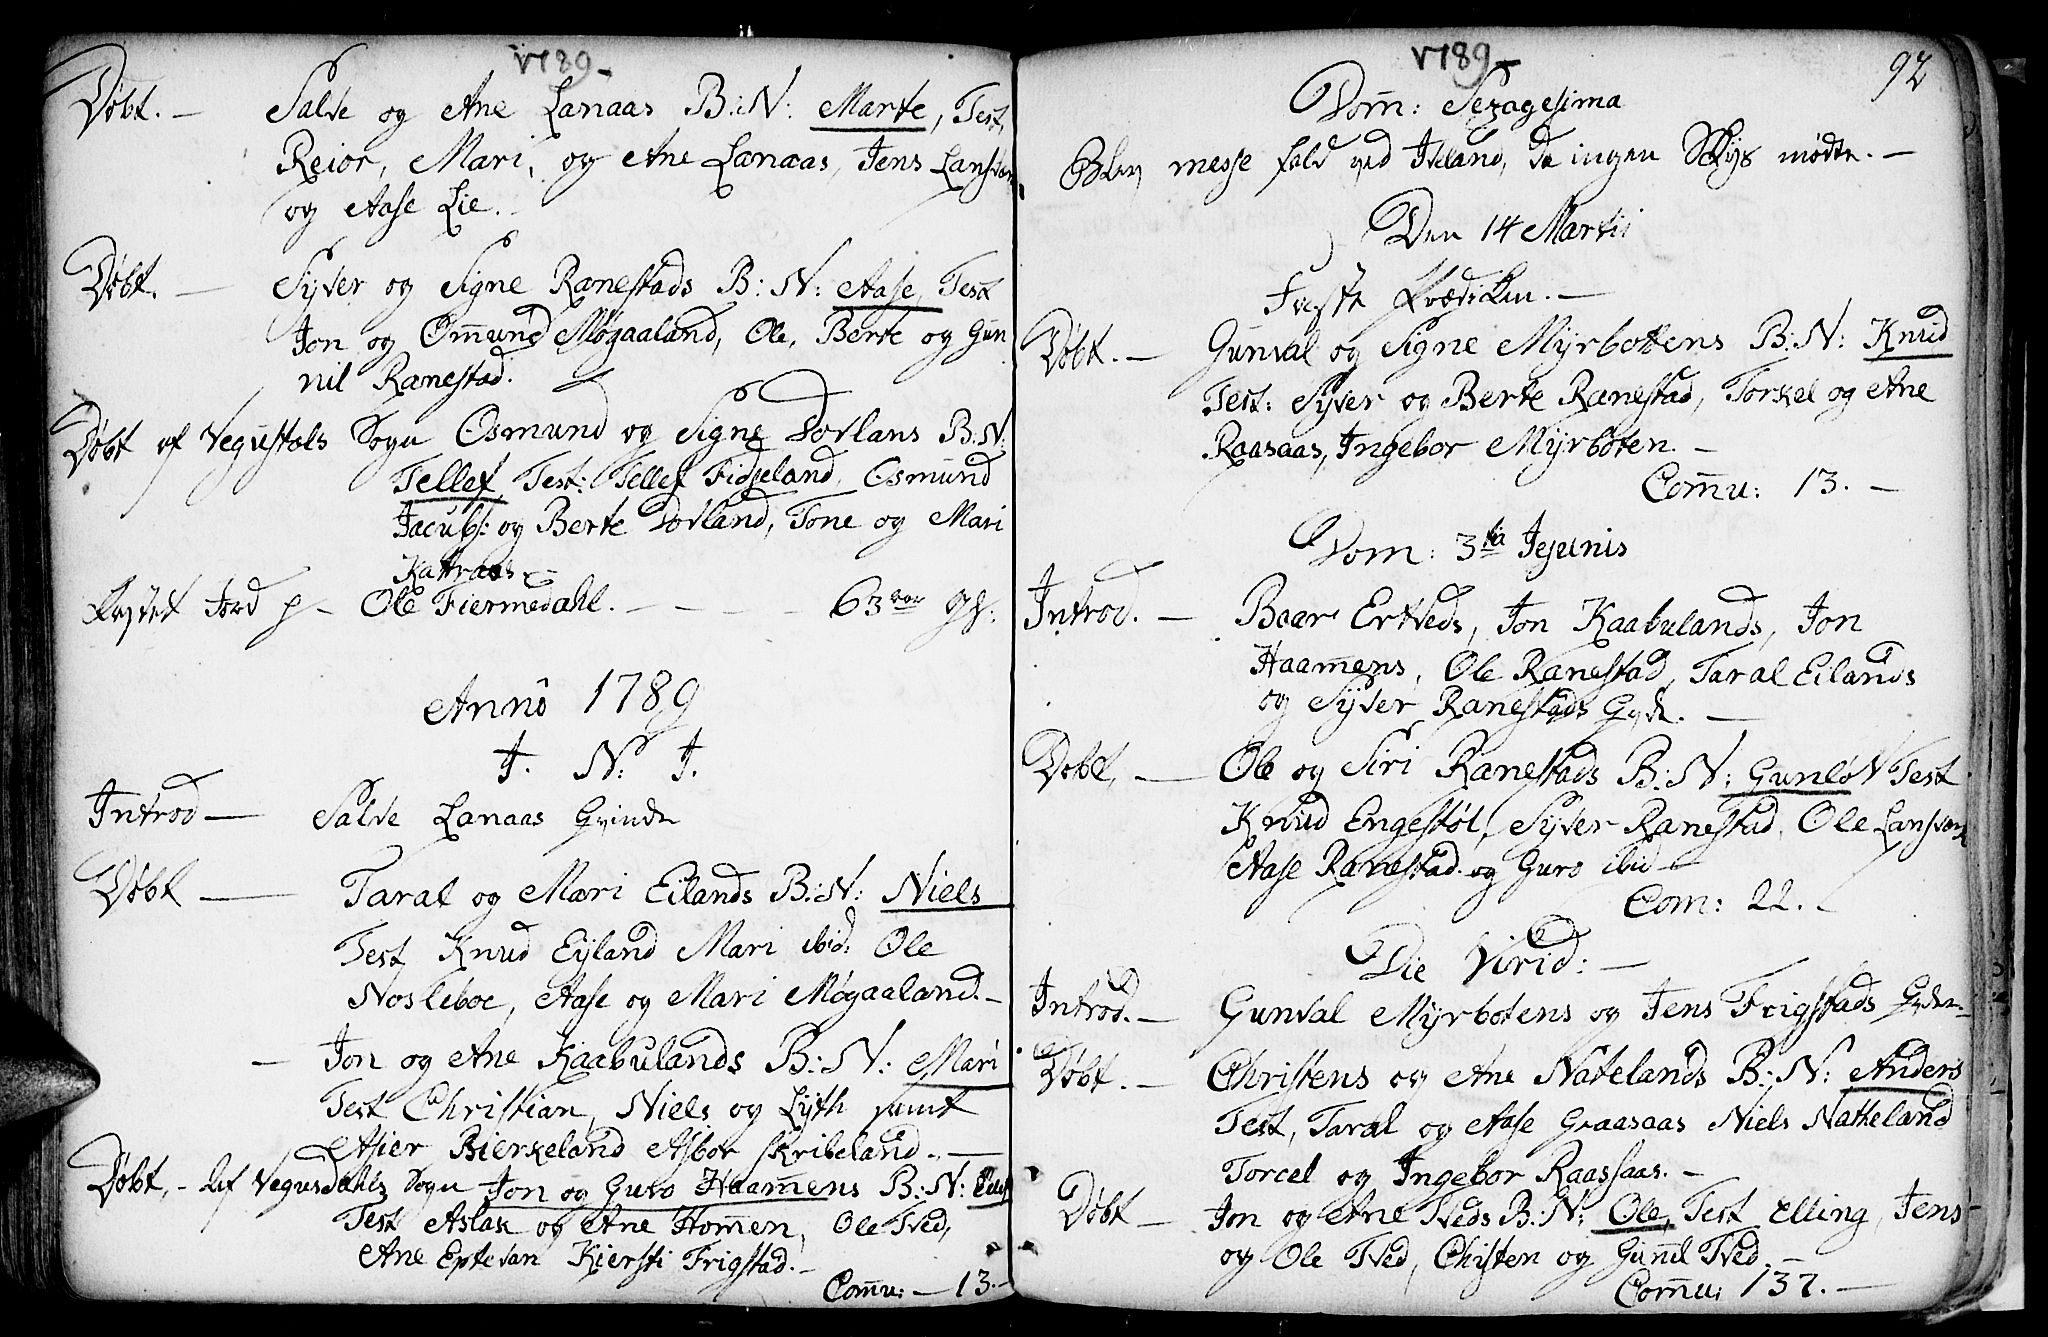 1789
Døbt. — Salve og Ane Lanaas B: N: Marte, Test,
Reior, Mari, og Ane Lanaas, Jens Lansvær
og Aase Lie.
Døbt. — Syver og Signe Ranestads B: N: Aase, Test
Jon og Omund Møgaaland, Ole, Berte og Gun
nil Ranestad.
Døbt af Vegustals Sogn Osmund og Signe Dovlans B: N:
Tellef, Test: Tellef Fidjeland, Osmund
Jacobs: og Berte Dovland, Tone og Mari
Kattraas. —
Kastet Jord p — Ole Fiermedahl. — — — — 63 aar gl:
Anno 1789
J. N: J.
Introd — Salve Lanaas Qvinde
Døbt — Taral og Mari Eilands B: N: Niels
Test Knud Eyland Mari ibid: Ole
Nosleboe, Aase og Mari Møgaaland. —
— Jon og Ane Kaabulands B: N: Mari
Test Christian, Niels og Lyth samt
Asier Bierkeland Asbor Skribeland. —
Døbt, — Af Vegusdahls Sogn Jon og Guro Haamens B: N:
Test Aslak og Ane Homen, Ole Tved,
Ane Eptevan Kiersti Frigstad. —
Comu: — 13. —
1789
92
Dom: Sexagesima
Blev messe fald ved Iveland, da ingen Skys mødte. —
Den 14 Martii
Første Prædiken. —
Døbt. — Gunval og Signe Myrbottens B: N: Knud
Test: Syver og Berte Ranestad, Torkel og Ane
Raasaas, Ingebor Myrboten. —
Comu: 13. —
Dom: 3tia Jejunis
Introd. — Baar Ertveds, Jon Kaabulands, Jon
Haamens, Ole Ranestad, Taral Eilands
og Syver Ranestads Qvdr. —
Døbt, — Ole og Siri Ranestads B: N: Gunløv Test
Knud Engestøl, Syver Ranestad, Ole Lansvær
Aase Ranestad og Guro ibid —
Com: 22. —
Die Virid: —
Introd. — Gunval Myrbotens og Jens Frigstads Qvdr. —
Døbt. — Christens og Ane Natelands B: N: Anders
Test, Taral og Aase Graasaas Niels Natheland
Torcel og Ingebor Raassaas. —
Døbt — Jon og Ane Tveds B: N: Ole, Test Elling, Jens
og Ole Tved, Christen og Gunil Tved. —
Comu: 137. —